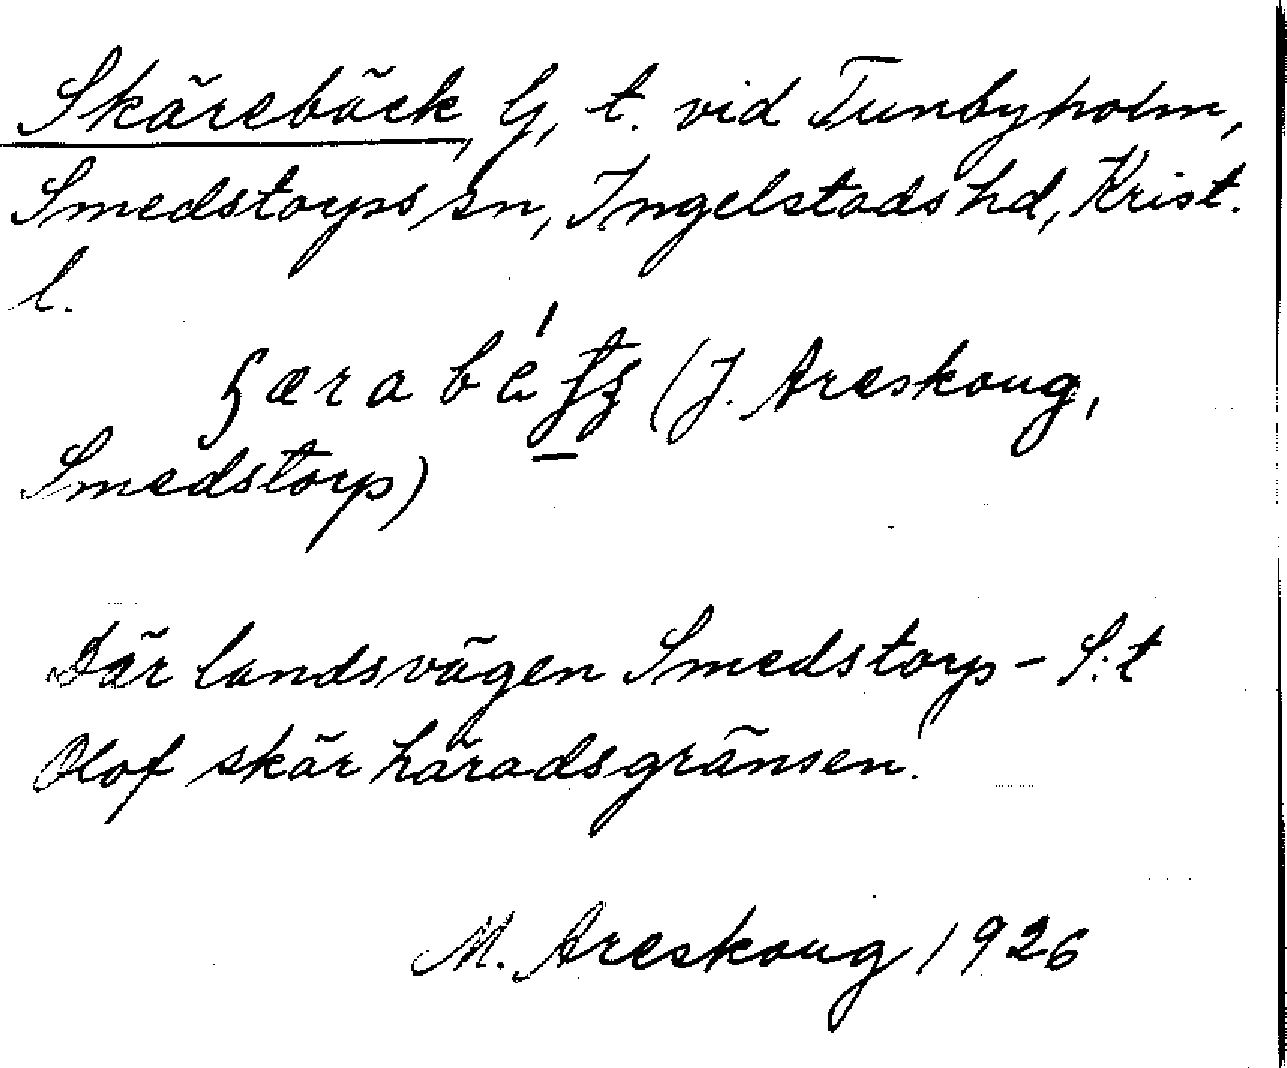 Skärebäck, G, t. vid Tunbyholm,
Smedstorps sn, Ingelstads hd, Krist.
l.
(J. Areskoug,
Smedstorp)
Där landsvägen Smedstorp - S:t
Olof skär häradsgränsen.
M. Areskoug 1926